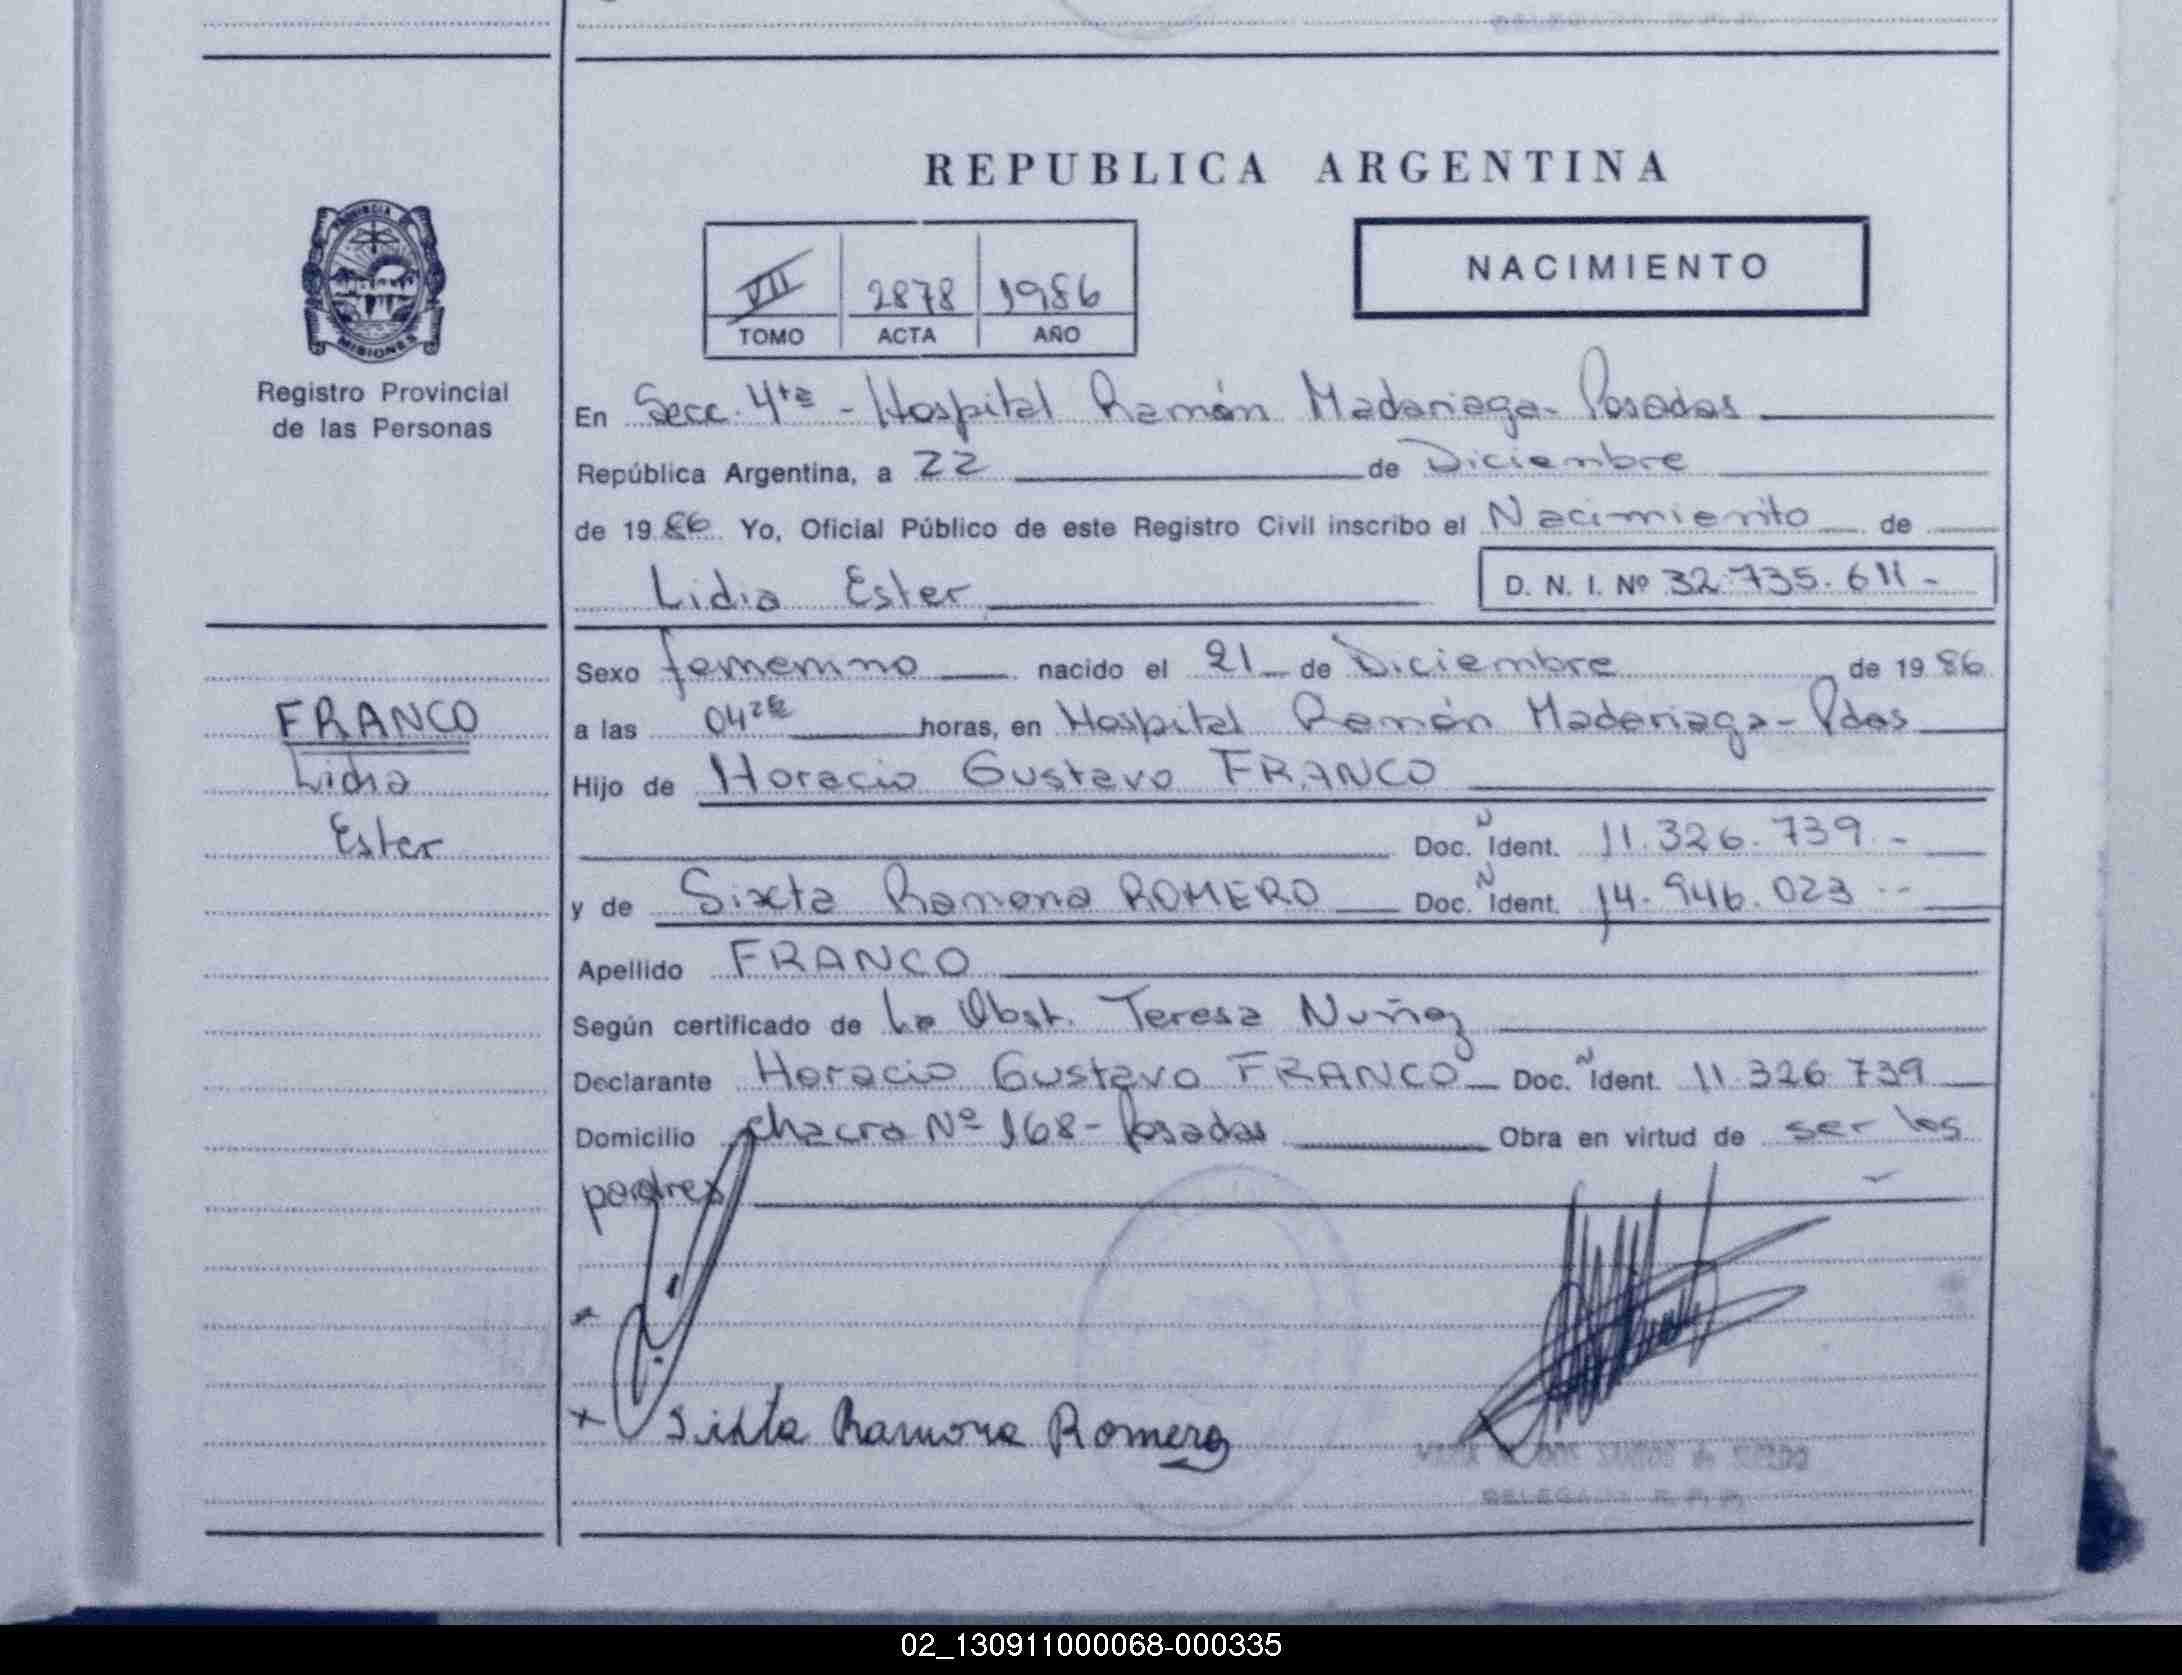 REPUBLICA ARGENTINA
PROVINCIA
MISIONES
Registro Provincial
de las Personas
VII 2878 1986
TOMO ACTA AÑO
NACIMIENTO
En Secc. 4ta - Hospital Ramón Madariaga - Posadas
República Argentina, a 22 de Diciembre
de 1986 Yo, Oficial Público de este Registro Civil inscribo el Nacimiento de
Lidia Ester D. N. I. Nº 32.735.611-
Sexo femenino nacido el 21 de Diciembre de 1986
a las 04 horas, en Hospital Ramón Madariaga - Pdas
Hijo de Horacio Gustavo FRANCO
Doc. N Ident. 11.326.739.-
y de Sixta Ramona ROMERO Doc. N Ident. 14.946.023.--
Apellido FRANCO
Según certificado de La Obst. Teresa Nuñez
Declarante Horacio Gustavo FRANCO Doc. N Ident. 11.326.739
Domicilio chacra Nº 168 - Posadas Obra en virtud de ser los
padres
FRANCO
Lidia
Ester
Sixta Ramona Romero
DELEGADA R. P. P.
02_130911000068-000335